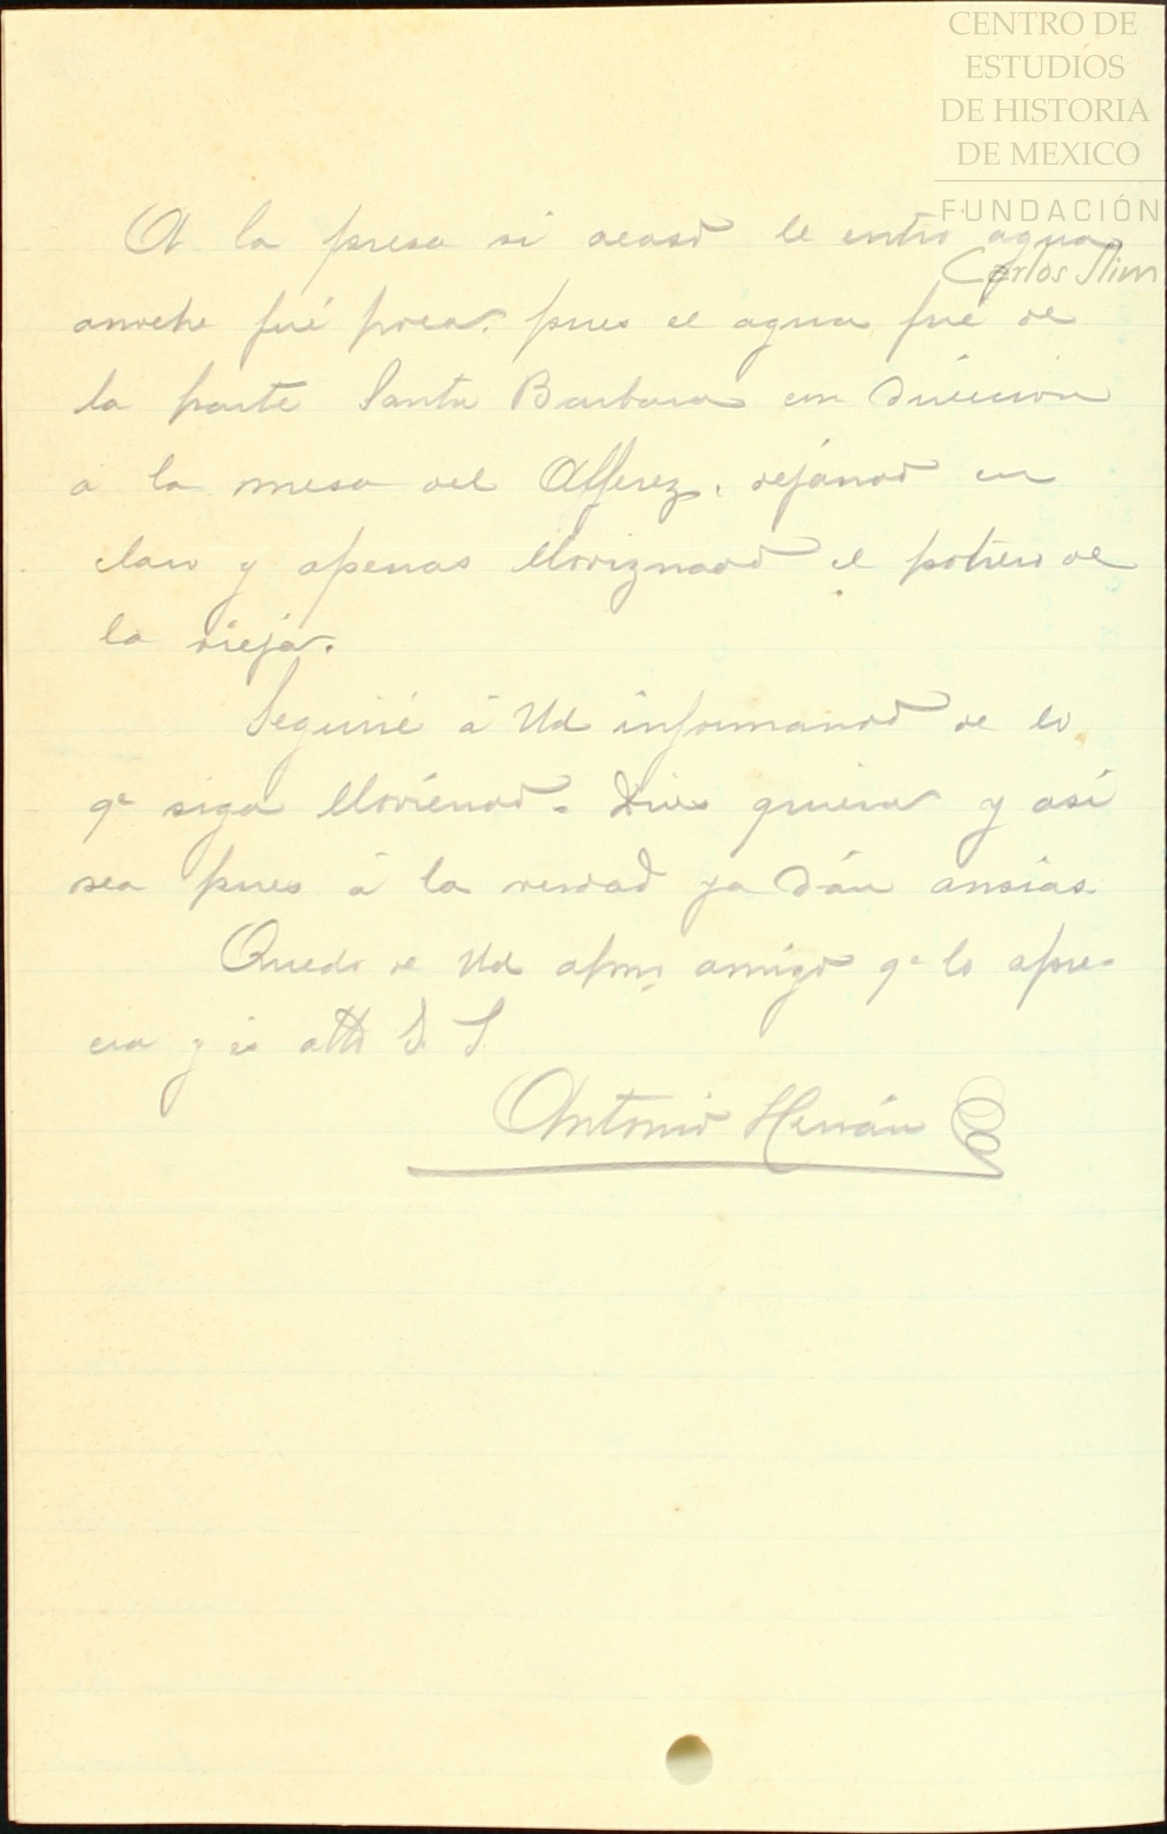 CENTRO DE
ESTUDIOS
DE HISTORIA
DE MEXICO
FUNDACIÓN
Carlos Slim
A la presa si acaso le entró agua
anoche fué poca. pues el agua fué de
la parte Santa Barbara en direccion
a la mesa del Alferez, dejando en
claro y apenas lloviznado el potrero de
la vieja.
Seguiré á Ud informando de lo
qe siga lloviendo. Dios quiera y así
sea pues á la verdad ya dán ansias.
Quedo de Ud afmo amigo qe lo apre-
cia y es atto S. S.
Antonio Herrán